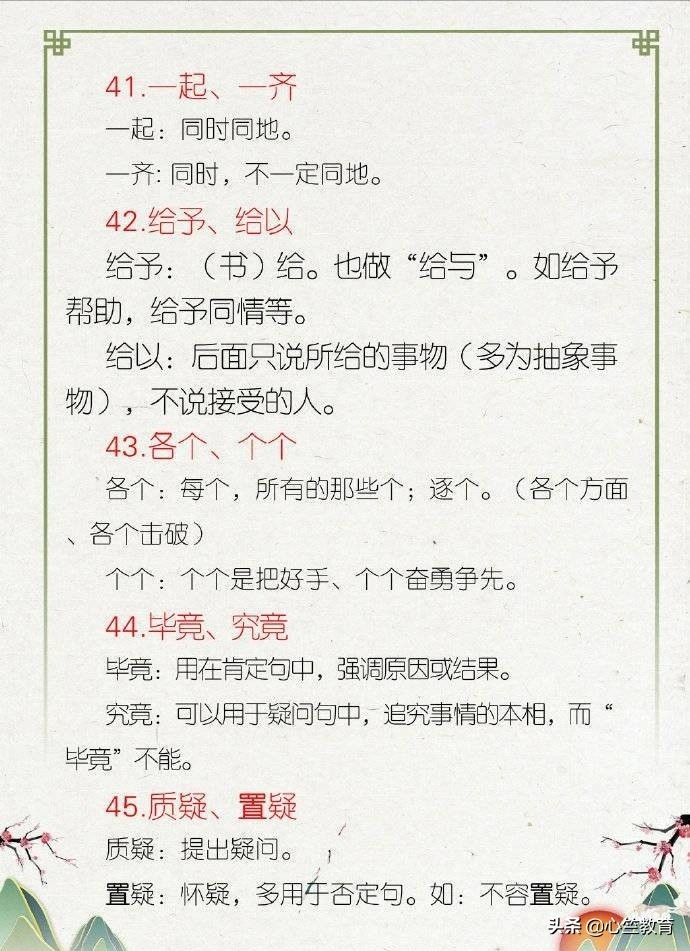 41.一起、一齐
一起：同时同地。
一齐：同时，不一定同地。
42.给予、给以
给予：（书）给。也做“给与”。如给予
帮助，给予同情等。
给以：后面只说所给的事物（多为抽象事
物），不说接受的人。
43.各个、个个
各个：每个，所有的那些个；逐个。（各个方面
、各个击破）
个个：个个是把好手、个个奋勇争先。
44.毕竟、究竟
毕竟：用在肯定句中，强调原因或结果。
究竟：可以用于疑问句中，追究事情的本相，而“
毕竟”不能。
45.质疑、置疑
质疑：提出疑问。
置疑：怀疑，多用于否定句。如：不容置疑。
头条 @心竺教育